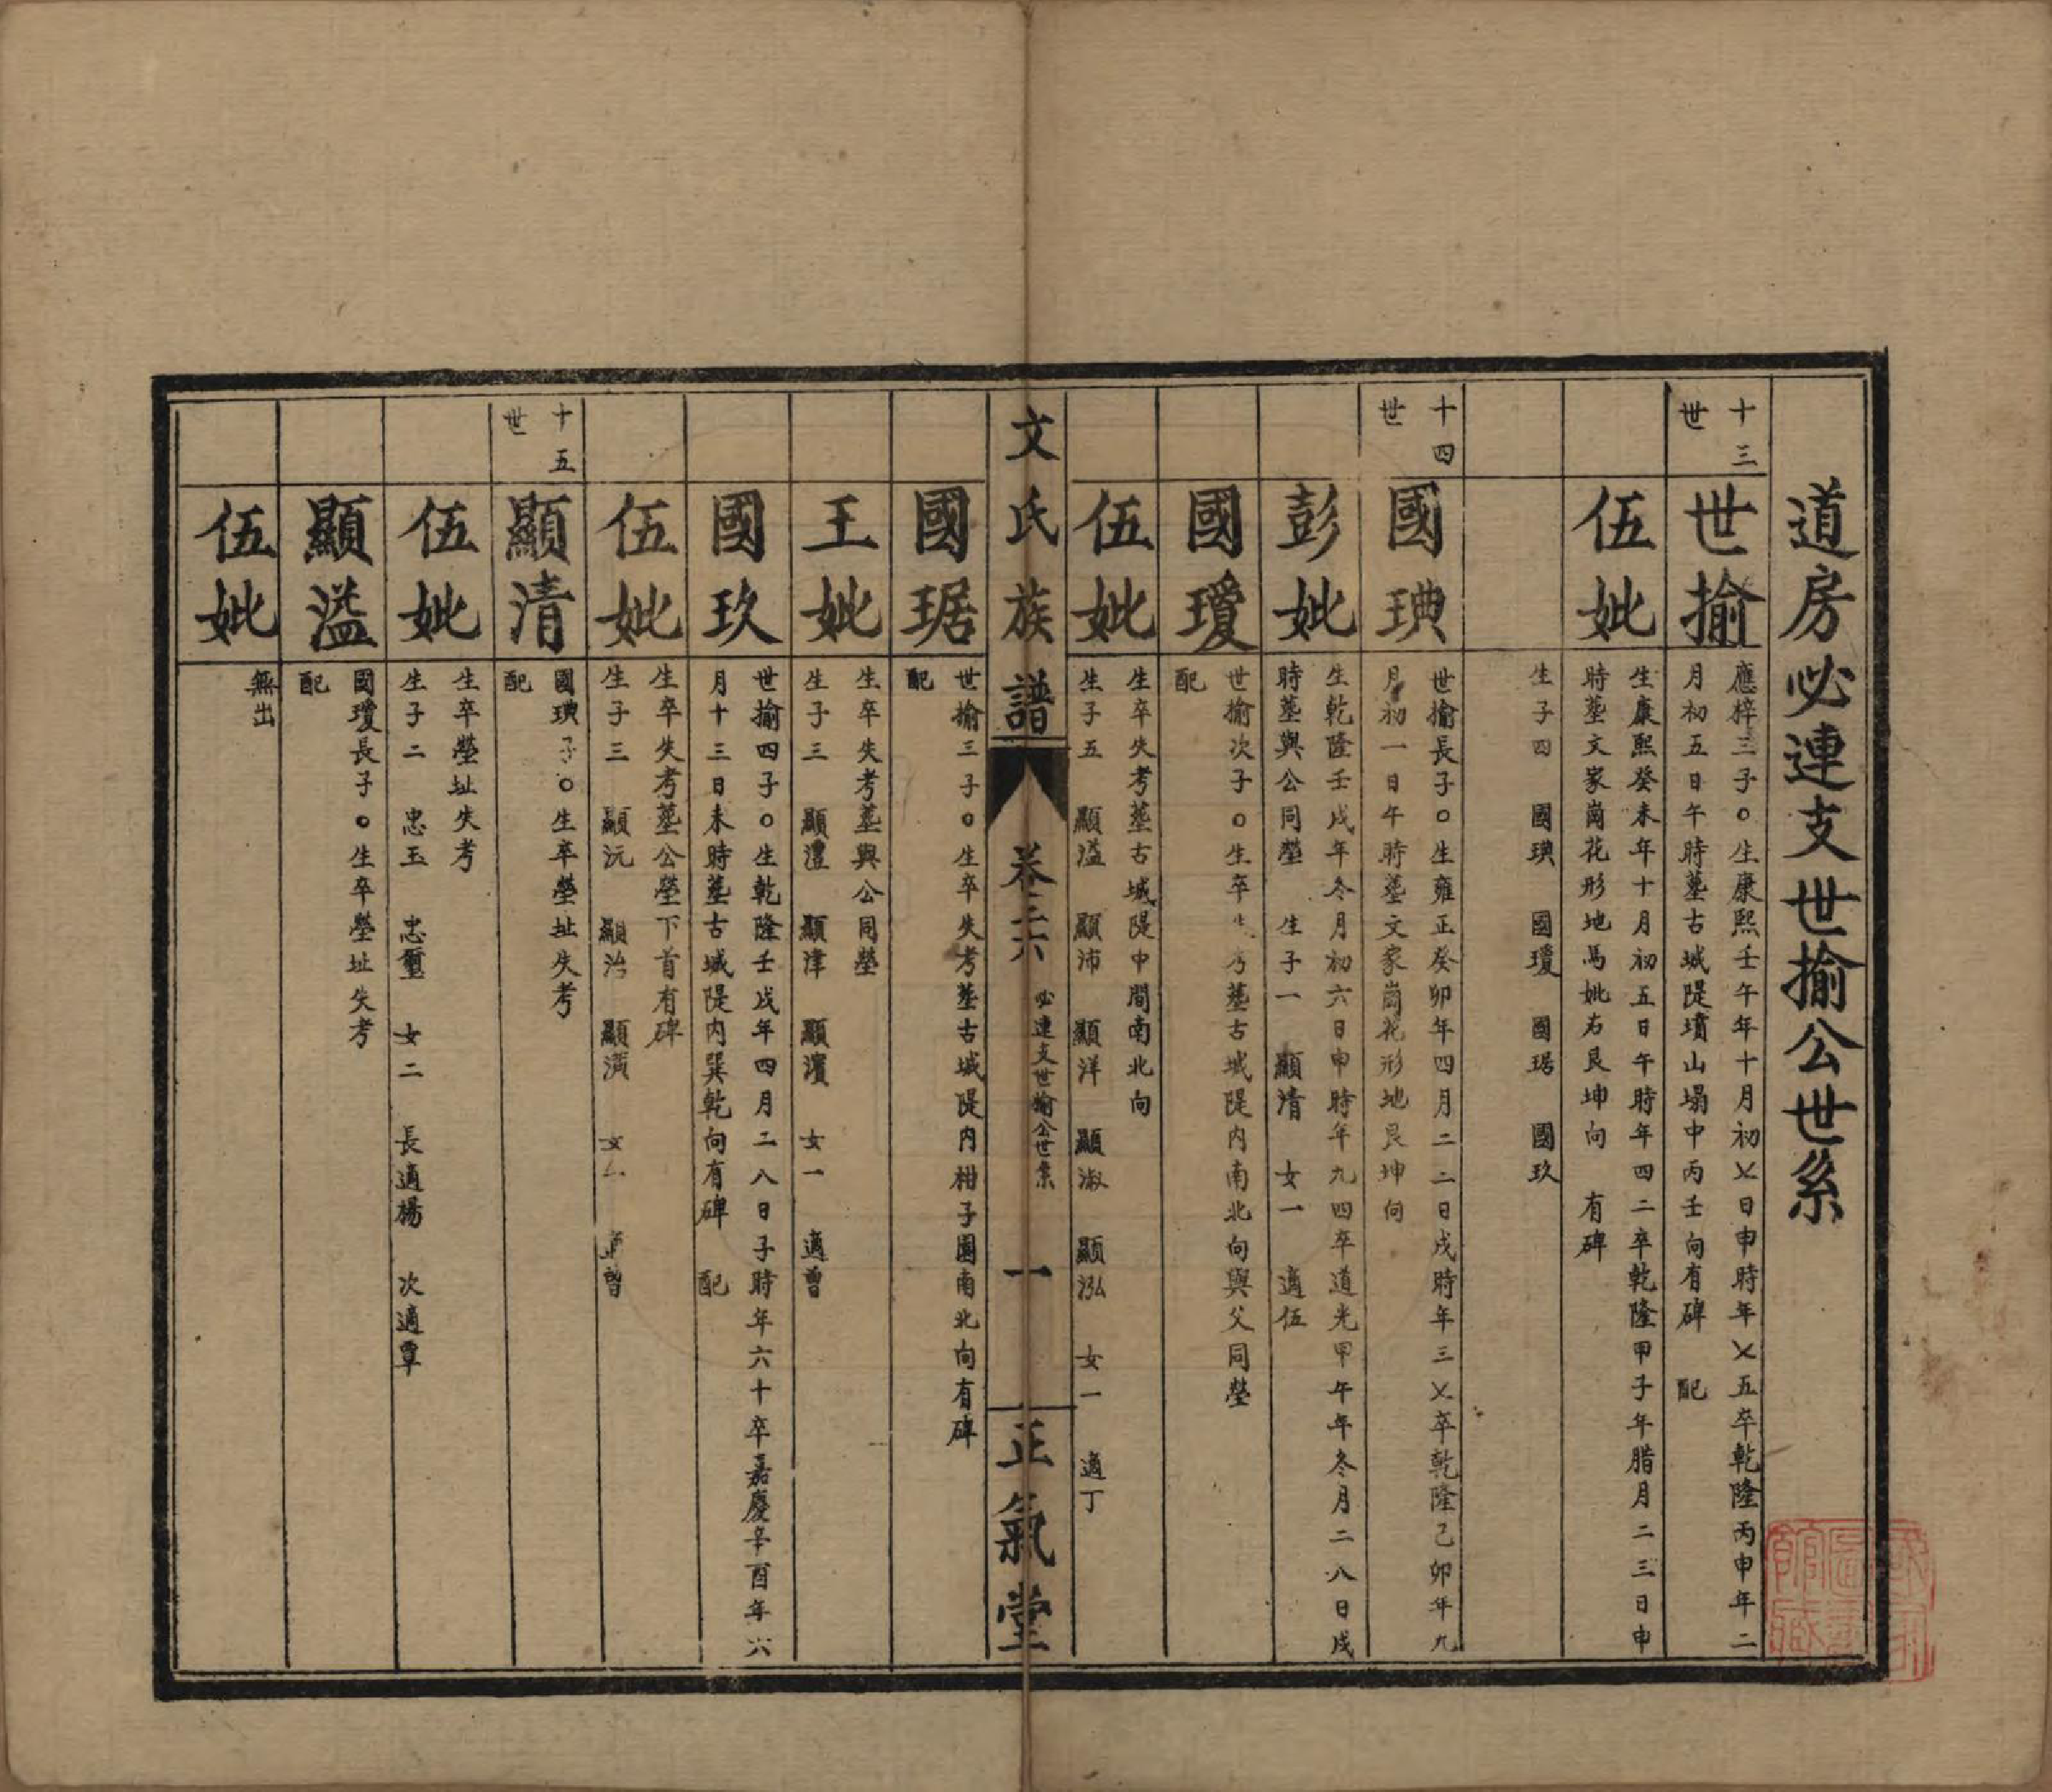 道房必連支世揄公世系
十三世
世揄
應梓三子〇生康熙壬午年十月初乂日申時年乂五卒乾隆丙申年二
月初五日午時墓古城隄墳山塌中丙壬向有碑 配
伍妣
生康熙癸未年十月初五日午時年四二卒乾隆甲子年腊月二三日申
時塟文家崗花形地馬妣右艮坤向 有碑
生子四 國琠 國瓊 國琚 國玖
十四世
國琠
世揄長子〇生雍正癸卯年四月二二日戌時年三乂卒乾隆己卯年九
月初一日午時塟文家崗花形地艮坤向
彭妣
生乾隆壬戌年冬月初六日申時年九四卒道光甲午年冬月二八日戌
時塟與公同塋 生子一 顯清 女一 適伍
國瓊
世揄次子〇生卒 塟古城隄内南北向與父同塋
配
伍妣
生卒失考塟古城隄中間南北向
生子五 顯溢 顯沛 顯洋 顯淑 顯泓 女一 適丁
文氏族譜
卷之六 必連支世揄公世系 一
正氣堂
國琚
世揄三子〇生卒失考塟古城隄内柑子園南北向有碑
配
王妣
生卒失考塟與公同塋
生子三 顯澧 顯津 顯濱 女一 適曾
國玖
世揄四子〇生乾隆壬戌年四月二八日子時年六十卒嘉慶辛酉年六
月十三日未時塟古城隄内巽乾向有碑 配
伍妣
生卒失考塟公塋下首有碑
生子三 顯沅 顯治 顯濆 女 適曾
十五世
顯清
國琠子〇生卒塋址失考
配
伍妣
生卒塋址失考
生子二 忠玉 忠璽 女二 長適楊 次適覃
顯溢
國瓊長子〇生卒塋址失考
配
伍妣
無出